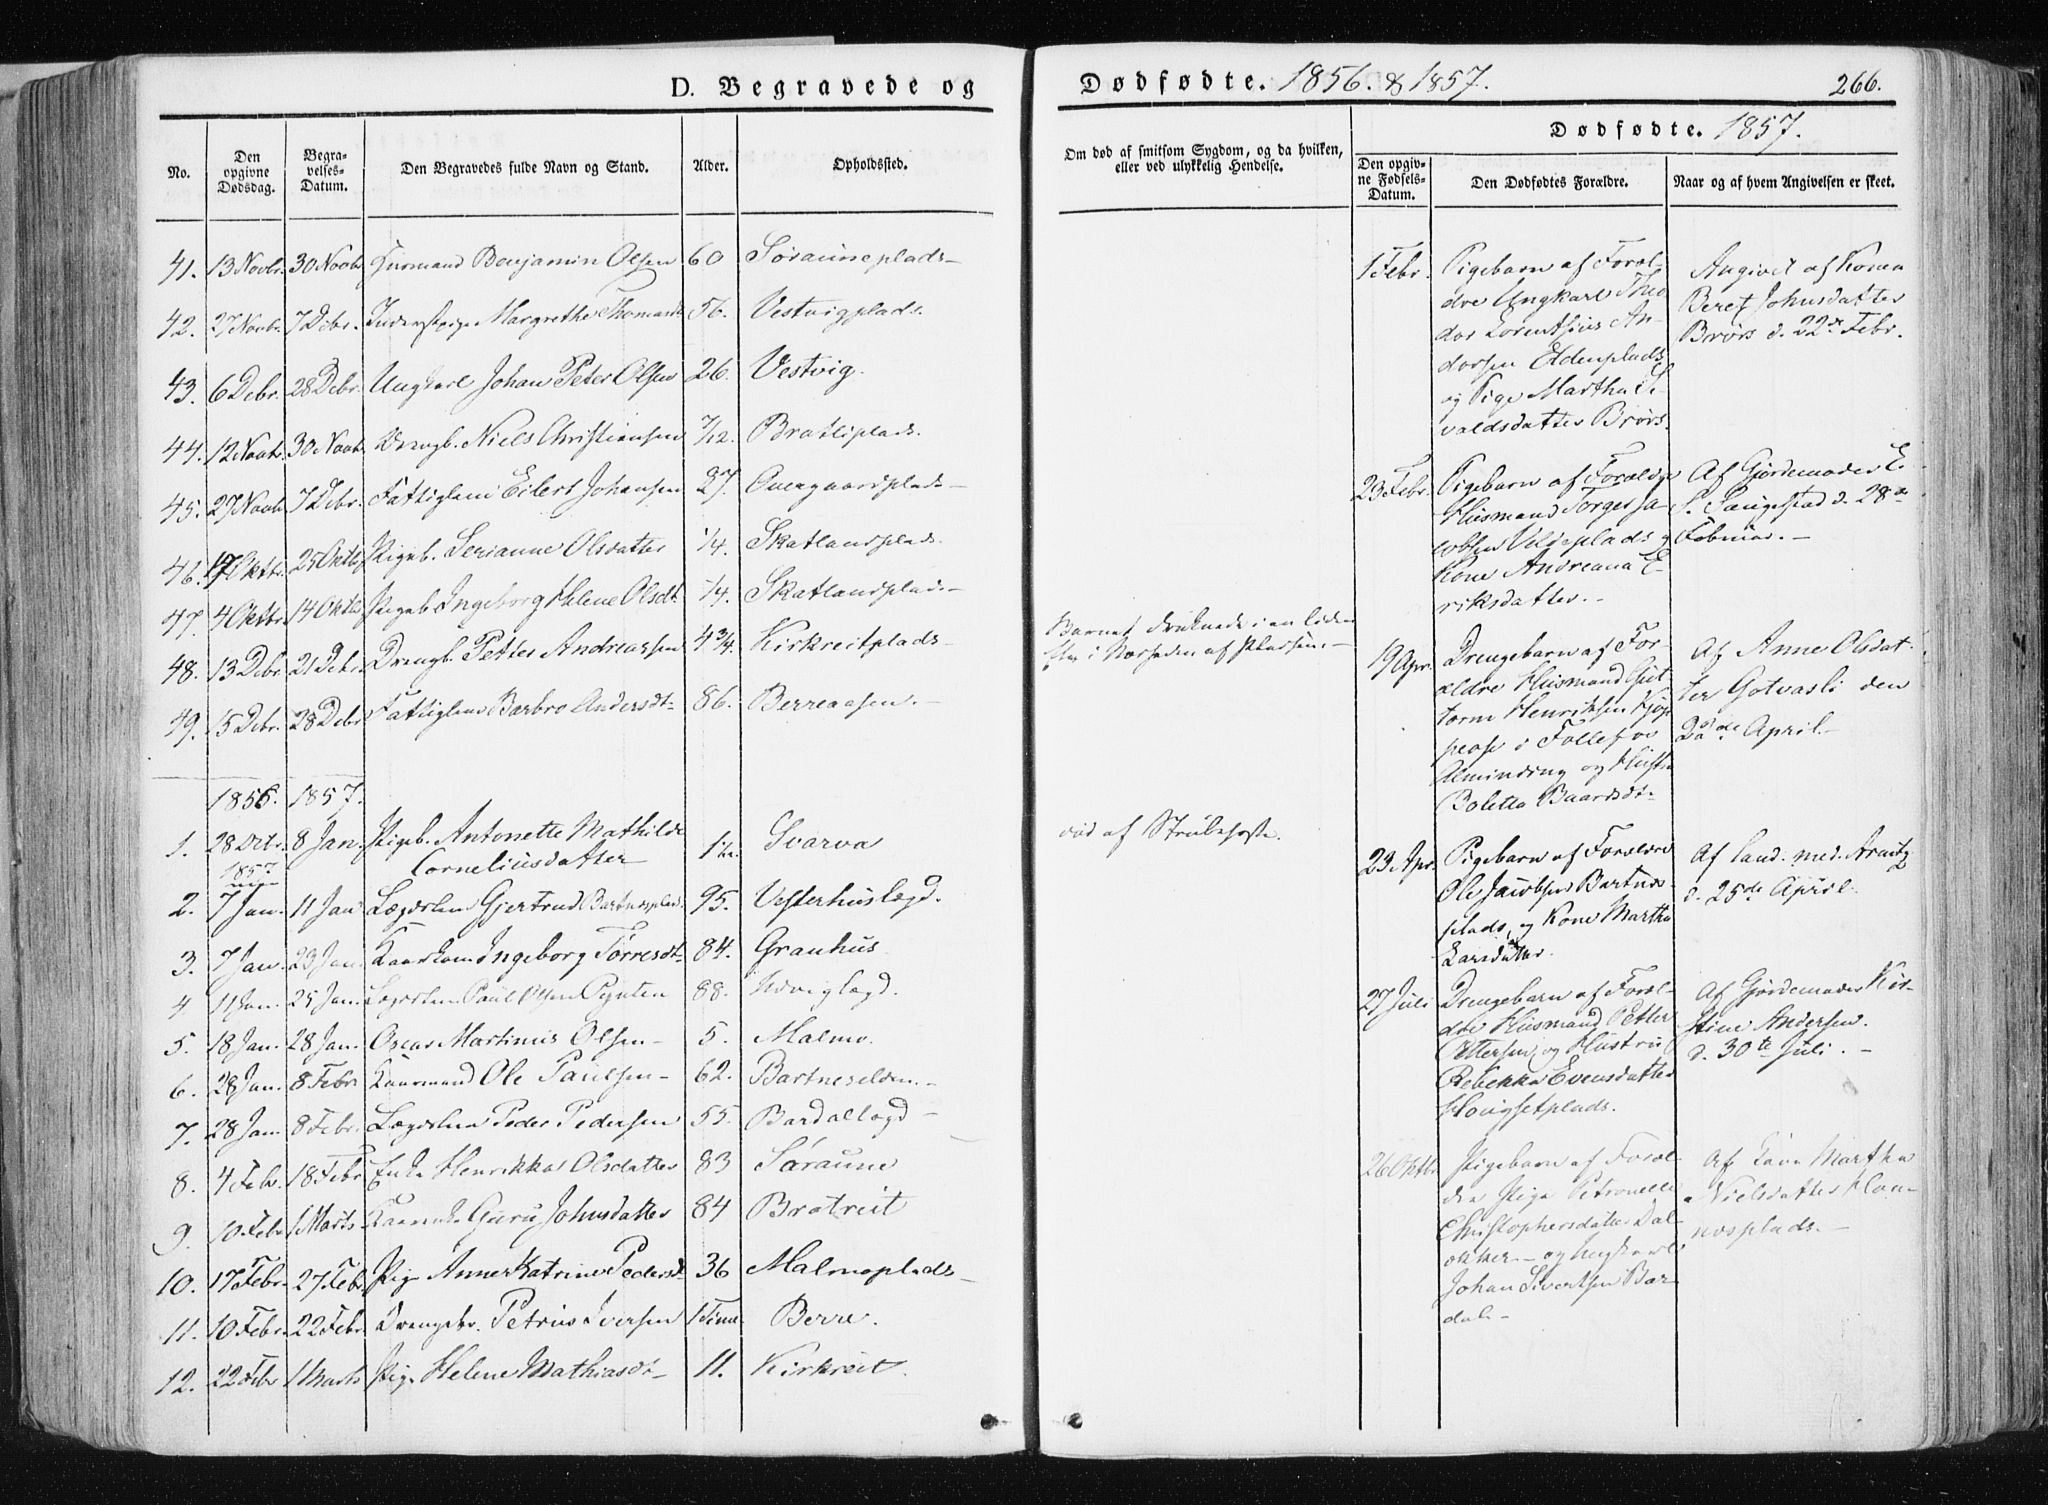 D. Begravede og
No.
Den opgivne Dødsdag.
Begravelses-Datum.
Den Begravedes fulde Navn og Stand.
Alder.
Opholdssted.
41. 13 Novbr. 30 Novbr Huusmand Benjamin Olsen 60 Sørauneplads
42. 27 Novbr. 7 Debr. Inderstpige Margrethe Thomasdt 56. Vestvigplads.
43. 6 Debr. 28 Debr. Ungkarl Johan Peter Olsen 26. Vestvig.
44. 12 Novbr. 30 Novbr. Drengb. Niels Christiansen 7/12. Bratliplads.
45. 27 Novbr 7 Debr. Fattiglem Eilert Johansen 27. Overgaardplads
46. 17 Oktbr. 25 Oktbr Pigeb. Serianne Olsdatter 1/4. Skatlandplads.
47. 4 Oktbr 14 Oktbr Pigeb. Ingeborg Helene Olsdt. 1/4. Skatlandplads
48. 13 Debr. 21 Debr. Drengb. Petter Andreassen 4 3/4. Kirkreitplads
49. 15 Debr. 28 Debr Fattiglem Barbro Andersdt 86. Berreaasen.
1856. 1857.
1. 28 Dcbr. 8 Jan. Pigeb. Antonette Mathilde
Corneliusdatter Svarva
1857
2. 7 Jan. 11 Jan Lægdslem Gjertrud Bartnesplads. 95. Vesterhuslægd.
3. 7 Jan. 23 Jan. Kaarkone Ingeborg Torresdt. 84. Granhus
4. 11 Jan. 25 Jan. Lægdslem Paul Olsen 88. Utviglægd.
5. 18 Jan. 28 Jan. Oscar Martinus Olsen 5. Malmo.
6. 28 Jan. 8 Febr. Kaarmand Ole Paulsen 62. Bartneselden.
7. 28 Jan. 8 Febr. Lægdslem Peder Pedersen 55. Bardallægd
8. 4 Febr. 18 Febr. Enke Henrikka Olsdatter 83 Søraune
9. 10 Febr 1 Marts Kaarenke Guru Johnsdatter 84 Bratreit
10. 17 Febr. 27 Febr. Pige Anne Katrine Pedersdt 36 Malmoplads
11. 10 Febr. 22 Febr. Drengebr. Petrus Iversen 1 Time Berre.
12. 22 Febr 1 Marts Pige Helene Mathiasdt 11. Kirkreit.
Dødfødte. 1856. & 1857.
266.
Om død af smitsom Sygdom, og da hvilken,
eller ved ulykkelig Hendelse.
Dødfødte. 1857.
Den opgivne Fødsels-Datum.
Den Dødfødtes Forældre.
Naar og af hvem Angivelsen er skeet.
Barnet druknede i en liden
Elv i Nærheden af Pladsen.
død af Strubehoste.
1 Febr.
Pigebarn af Foræl-
dre Ungkarl Theo-
dor Lorentsius An-
dorsen Eldenplads
og Pige Martha Si-
valdsdatter Brørs.
Angivet af Konen
Beret Johnsdatter
Brørs d. 22de Febr.
23 Febr.
Pigebarn af Forældre
Husmand Torger Ja-
cobsen Vildeplads og
Kone Andreana E-
riksdatter.
Af Gjordemoder E.
S. Saugestad d. 28de
Februar.
19 Apr.
Drengebarn af For-
ældre Husmand Gut-
torm Henriksen
i Follefos
Alminding og Hustru
Boletta Baardsdt
Af Anne Olsdat-
ter Gotvasli den
22de April
23 Apr.
Pigebarn af Forældre
Ole Jacobsen Bartnes-
plads, og Kone Martha
Larsdatter.
Af Cand. med. Arentz
d. 25de April.
27 Juli
Drengebarn af Foræl-
dre Husmand Petter
Pettersen og Hustru
Rebekka Evensdatter
Hougsetplads.
Af Gjordemoder Kir-
stine Andersen.
d. 30te Juli.
26 Oktbr
Pigebarn af Foræl-
dre Pige Petronelle
Christophersdatter Dal-
okker og Ungkarl
Johan Sivertsen Bar-
dal
Af Kone Martha
Nielsdatter
nesplads.